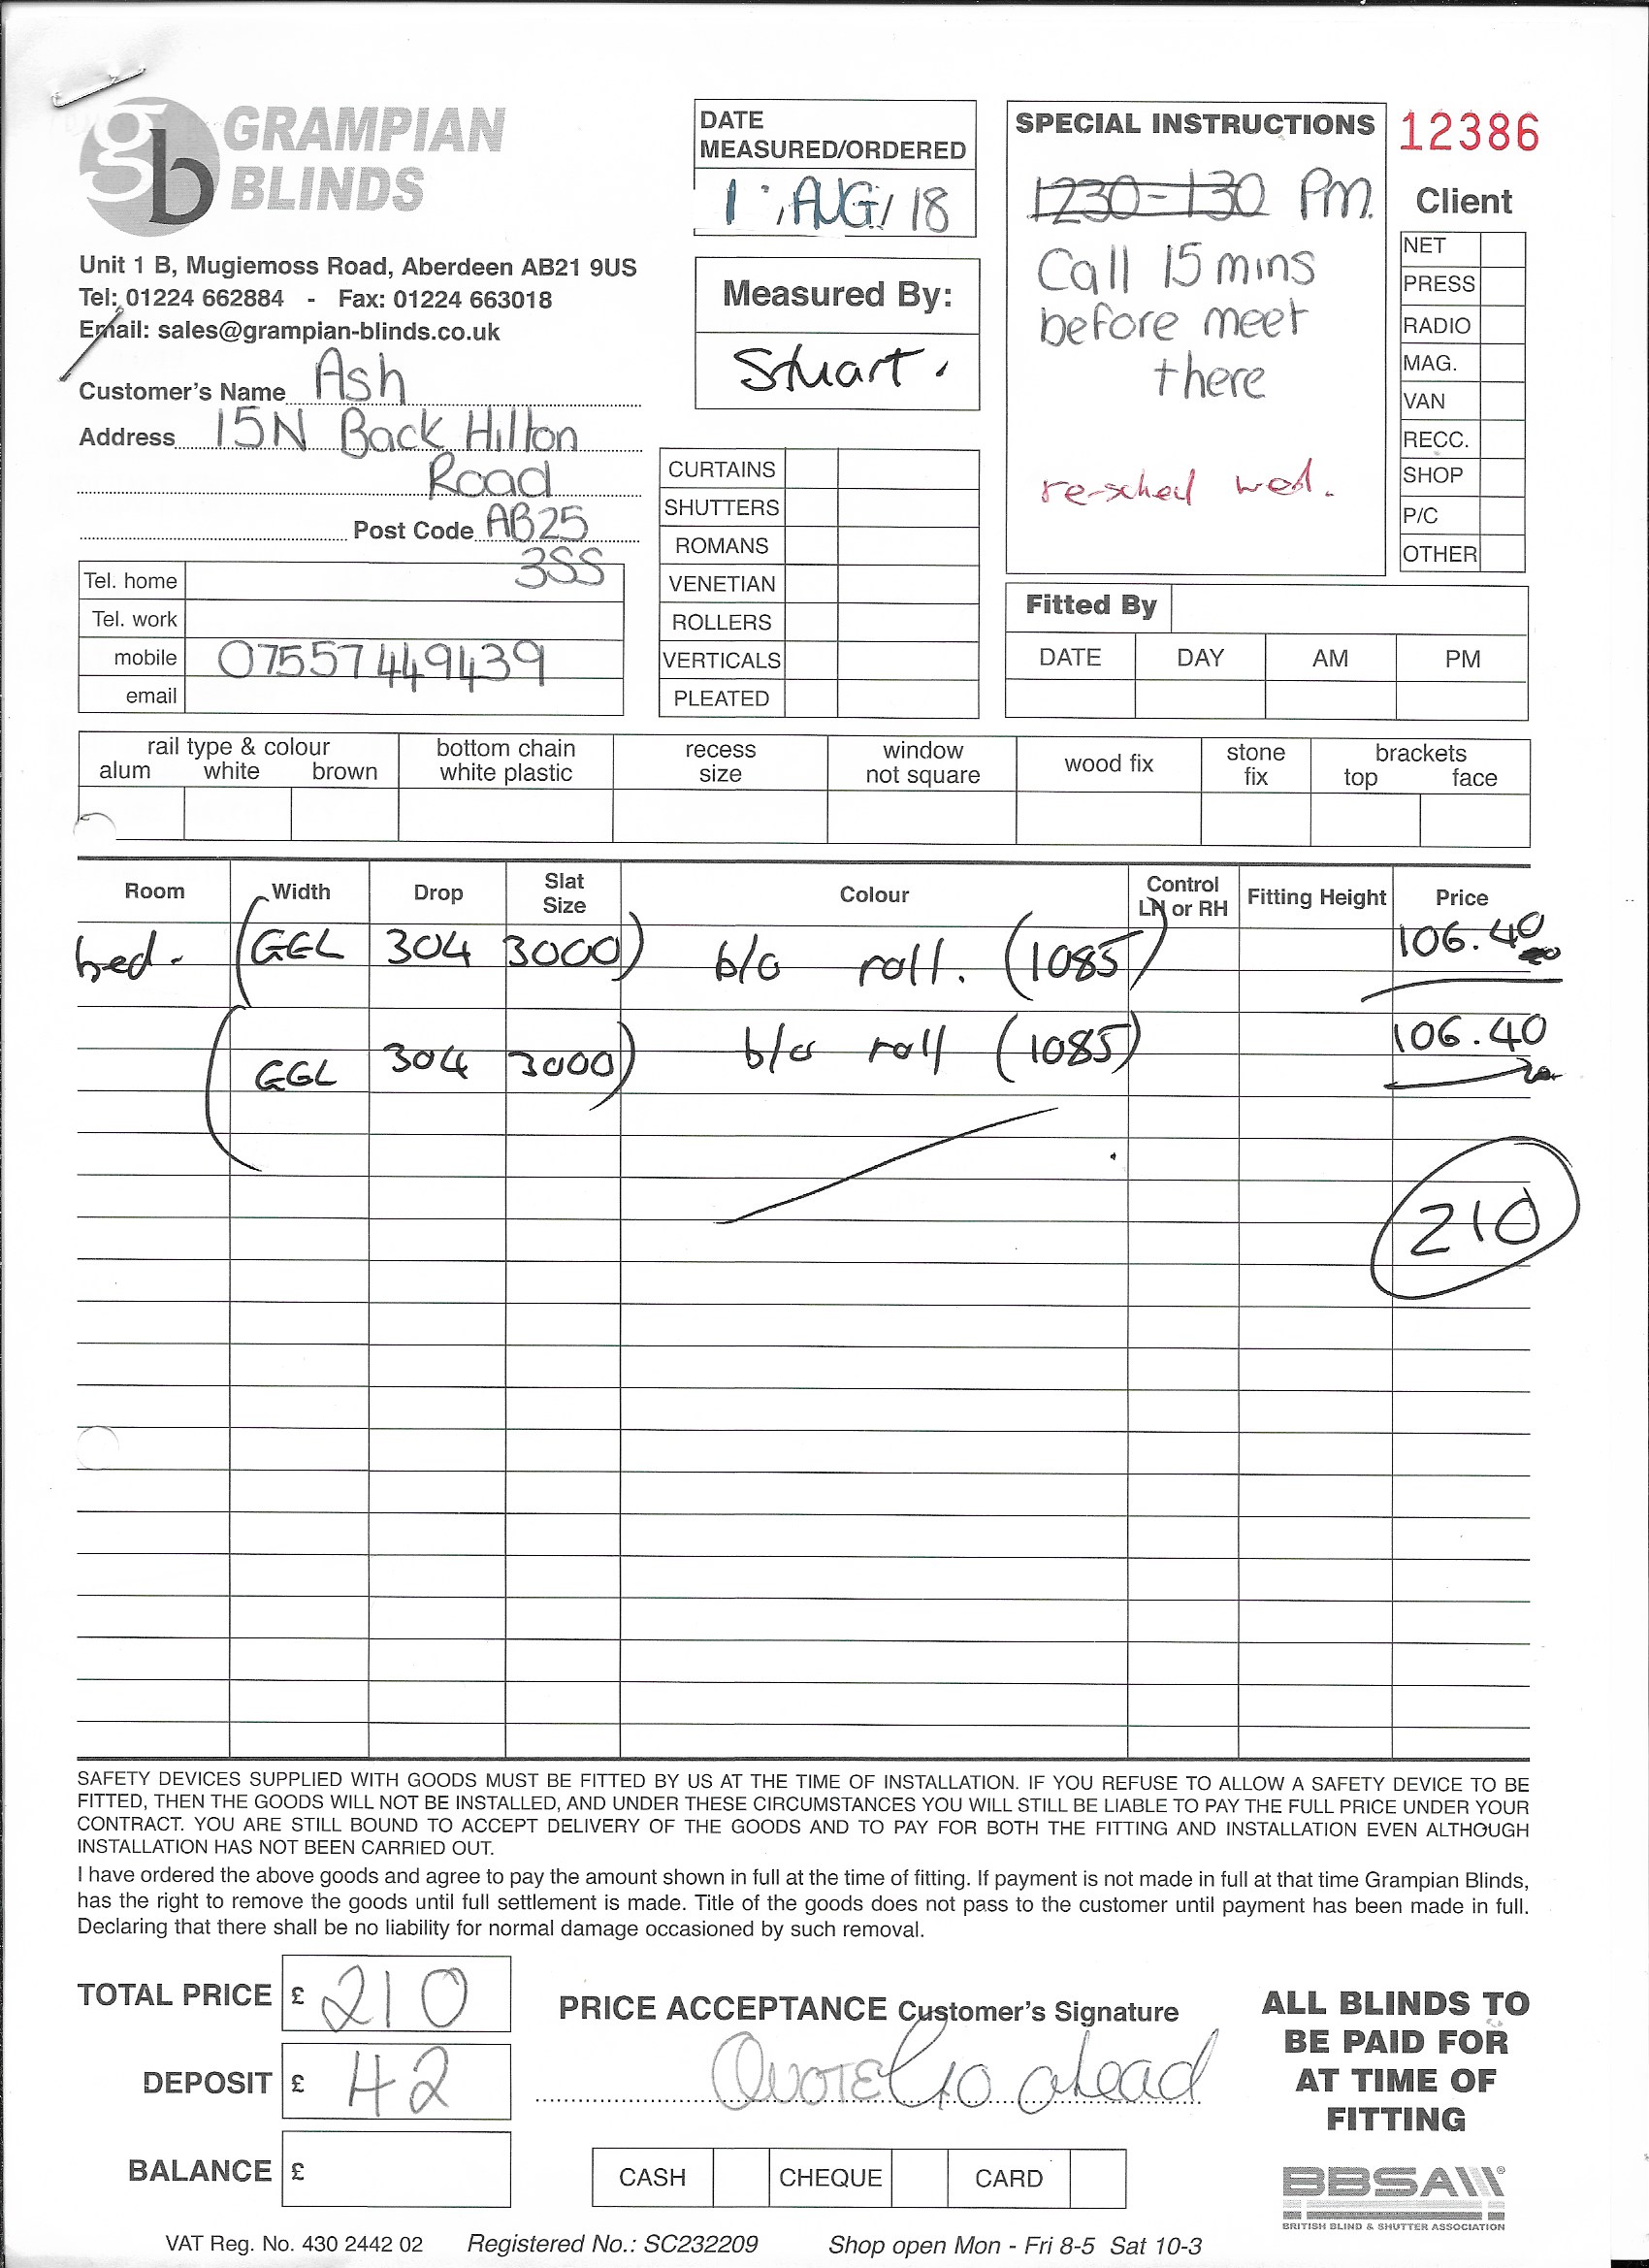 gb GRAMPIAN
BLINDS
Unit 1 B, Mugiemoss Road, Aberdeen AB21 9US
Tel: 01224 662884 - Fax: 01224 663018
Email: sales@grampian-blinds.co.uk
Customer's Name Ash
Address 15N Back Hilton
Road
Post Code AB25
3SS
Tel. home
Tel. work
mobile 07557449439
email
DATE
MEASURED/ORDERED
1 AUG/18
Measured By:
Stuart.
CURTAINS
SHUTTERS
ROMANS
VENETIAN
ROLLERS
VERTICALS
PLEATED
SPECIAL INSTRUCTIONS
1230-130 Pm.
Call 15 mins
before meet
there
re-sched wed.
12386
Client
NET
PRESS
RADIO
MAG.
VAN
RECC.
SHOP
P/C
OTHER
Fitted By
DATE DAY AM PM
rail type & colour bottom chain recess window wood fix stone brackets
alum white brown white plastic size not square fix top face
Room Width Drop Slat Size Colour Control LH or RH Fitting Height Price
bed. (GGL 304 3000) b/o roll. (1085) 106.40
(GGL 304 3000) b/o roll (1085) 106.40
210
SAFETY DEVICES SUPPLIED WITH GOODS MUST BE FITTED BY US AT THE TIME OF INSTALLATION. IF YOU REFUSE TO ALLOW A SAFETY DEVICE TO BE
FITTED, THEN THE GOODS WILL NOT BE INSTALLED, AND UNDER THESE CIRCUMSTANCES YOU WILL STILL BE LIABLE TO PAY THE FULL PRICE UNDER YOUR
CONTRACT. YOU ARE STILL BOUND TO ACCEPT DELIVERY OF THE GOODS AND TO PAY FOR BOTH THE FITTING AND INSTALLATION EVEN ALTHOUGH
INSTALLATION HAS NOT BEEN CARRIED OUT.
I have ordered the above goods and agree to pay the amount shown in full at the time of fitting. If payment is not made in full at that time Grampian Blinds,
has the right to remove the goods until full settlement is made. Title of the goods does not pass to the customer until payment has been made in full.
Declaring that there shall be no liability for normal damage occasioned by such removal.
TOTAL PRICE £ 210
DEPOSIT £ 42
BALANCE £
PRICE ACCEPTANCE Customer's Signature
Quote Go ahead
CASH CHEQUE CARD
ALL BLINDS TO
BE PAID FOR
AT TIME OF
FITTING
BBSA
BRITISH BLIND & SHUTTER ASSOCIATION
VAT Reg. No. 430 2442 02 Registered No.: SC232209 Shop open Mon - Fri 8-5 Sat 10-3